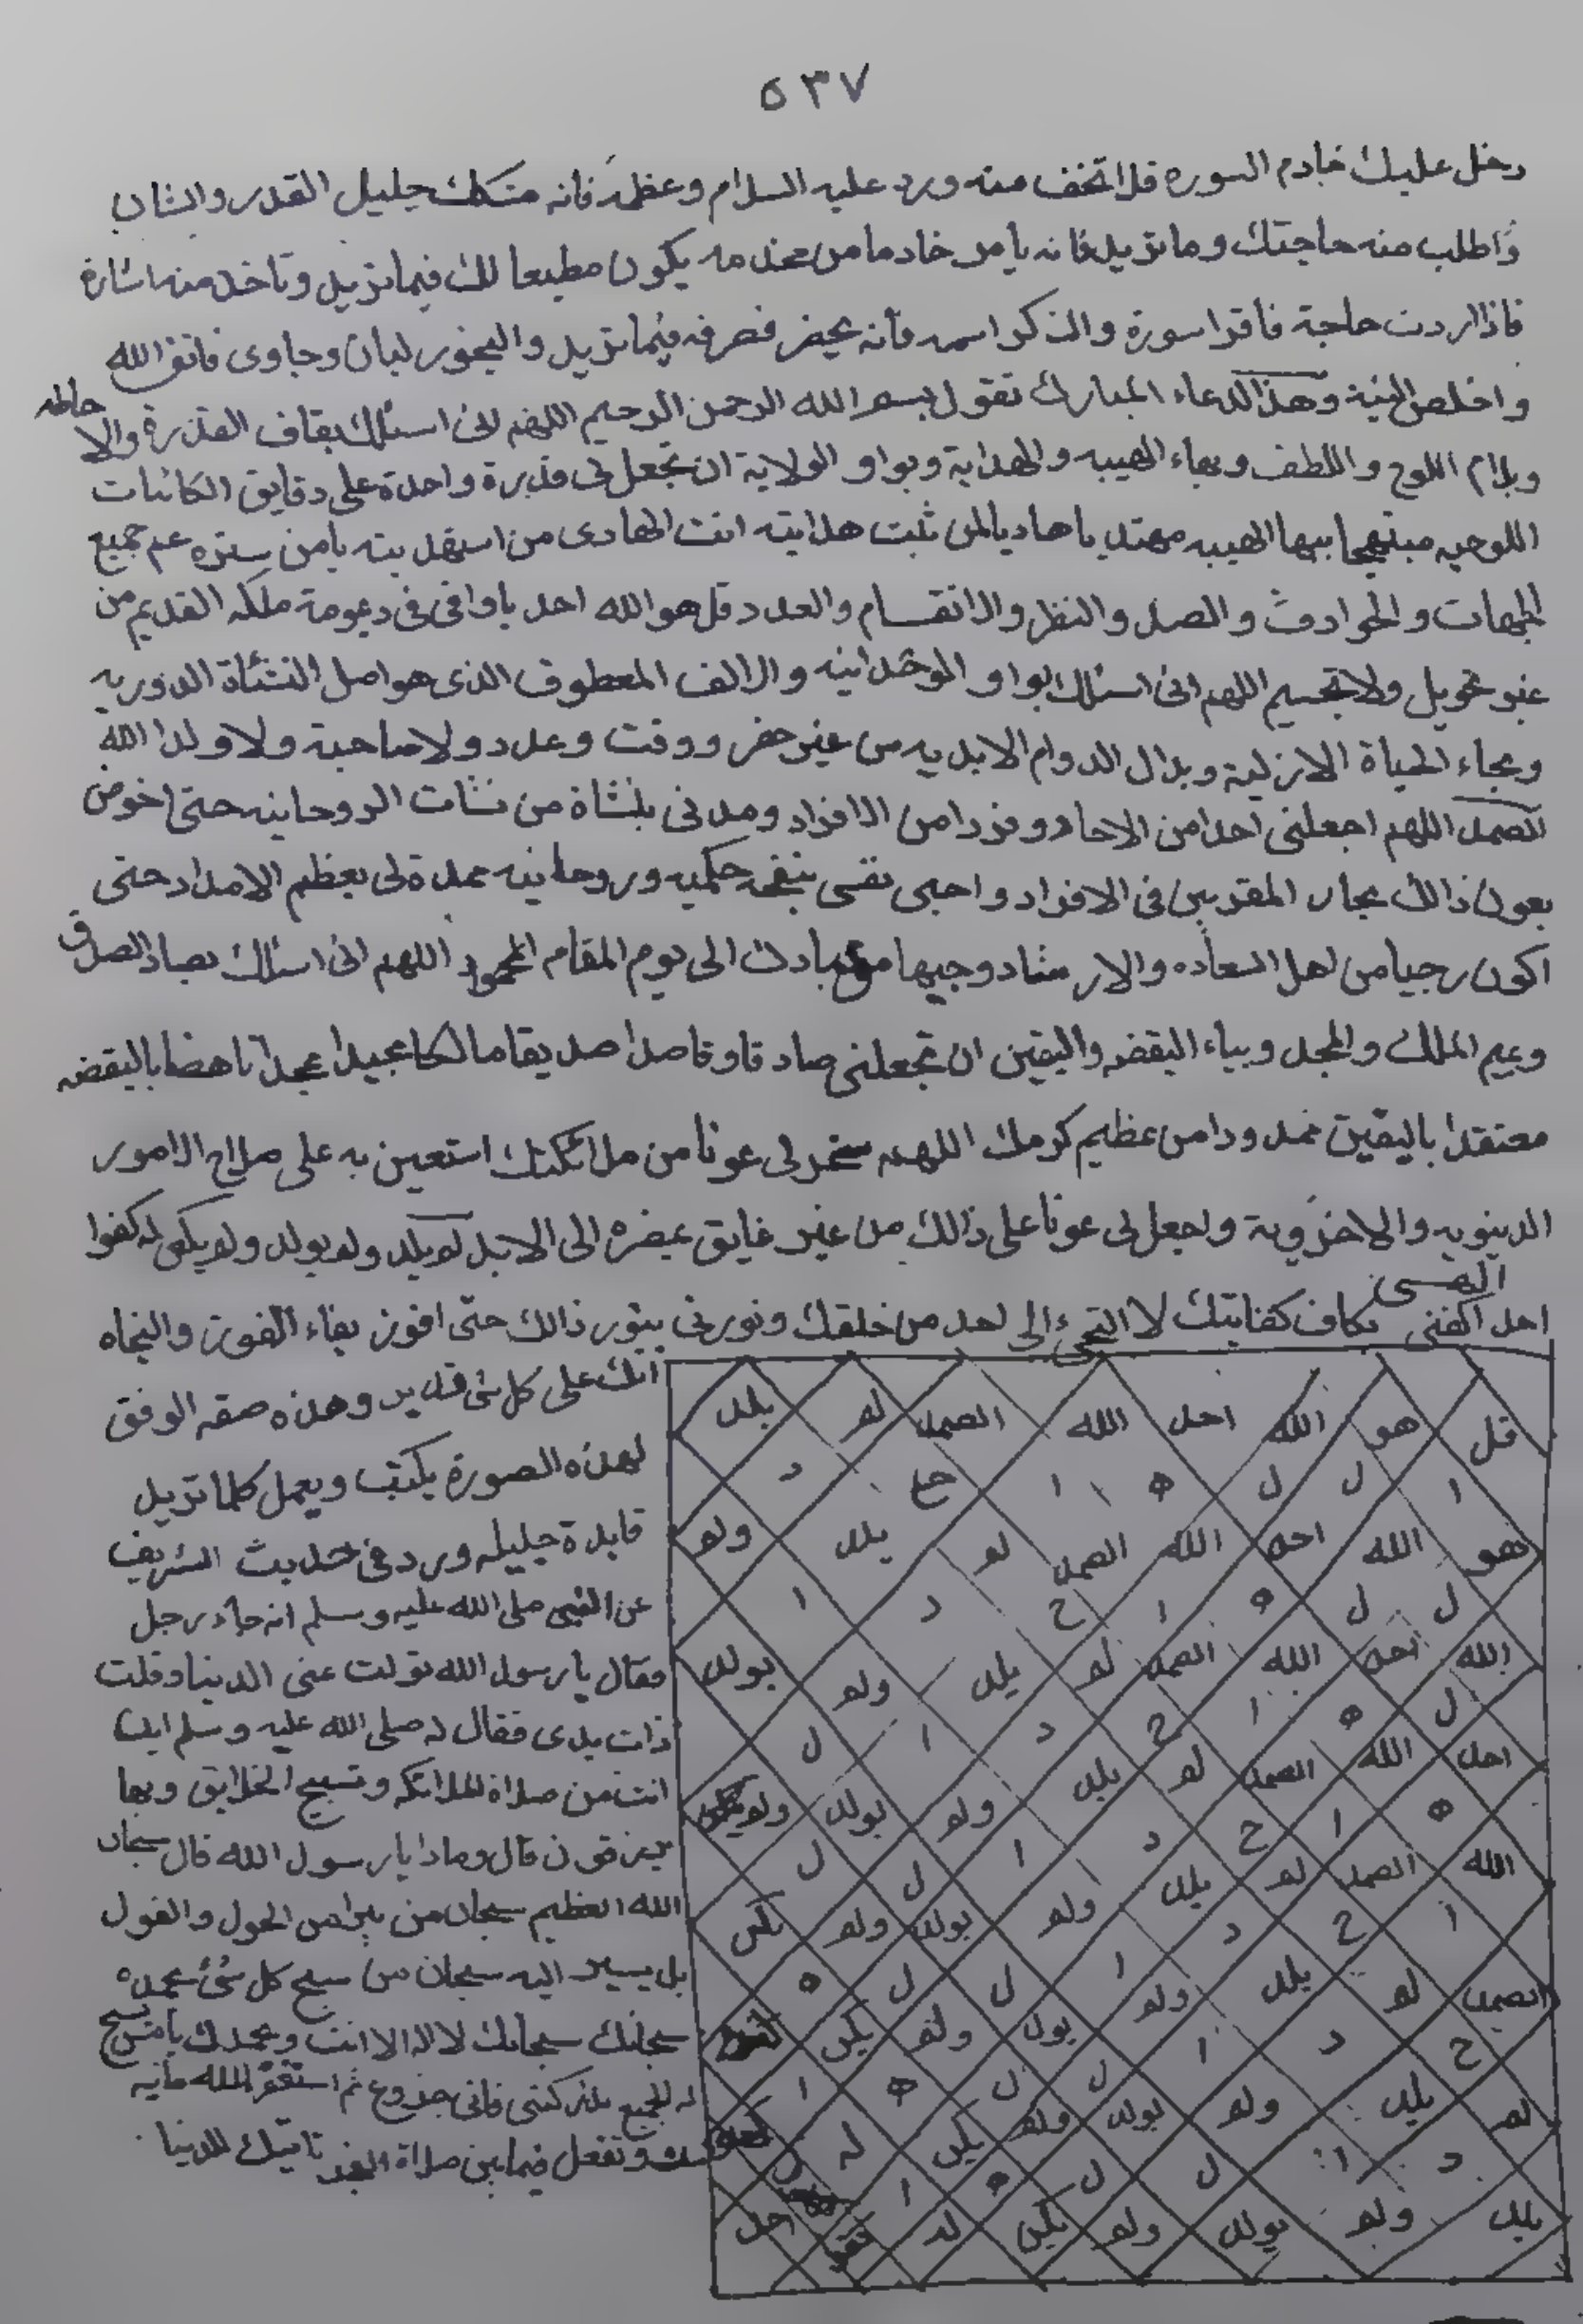 ٥٣٧
دخل عليك خادم السوره فلا تخف منه ورد عليه السلام وعظمه فانه ملك جليل القدر والشان
واطلب منه حاجتك وما تريد فانه يامر خادما من خدمه يكون مطيعا لك فيما تريد وتاخذ منه اشارة
فاذا اردت حاجة فاقرا سورة والذكر اسمه فانه يحضر فصرفه فيما تريد والبخور لبان وجاوى فاتق الله
واخلص النية وهذا الدعاء المبارك تقول بسم الله الرحمن الرحيم اللهم انى اسئلك بقاف القدرة والاحاطه
وبلام اللوح واللطف وبهاء الهيبه والهداية وبواو الولاية ان تجعل لى قدرة واحدة على دقايق الكائنات
اللوحيه مبتهجا ببها الهيبه مهتد يا هاديا لمن ثبت هدايته انت الهادى من استهديته يا من تنزه عم جميع
الجهات والحوادث والصد والنظر والانقسام والعدد قل هو الله احد يا وافى فى ديمومة ملكه القديم من
غير تحويل ولا تجسيم اللهم انى اسئلك بواو الوحدانيه والالف المعطوف الذى هو اصل النشأة الدوريه
وبحاء الحياة الازلية وبدال الدوام الابديه من غير حفر ووقت وعدد ولا صاحبة ولا ولدا الله
الصمد اللهم اجعلنى احدا من الاحاد وفردا من الافراد ومدنى بنشاة من نشات الروحانيه حتى اخوض
بعون ذالك بحار المقربين فى الافراد واحيى نفسى بنفحه حكميه وروحانيه ممدة لى بعظم الامداد حتى
اكون رجيا من اهل السعاده والارشاد وجيها مع عبادك الى يوم المقام المحمود اللهم انى اسئلك بصاد الصدق
وبميم الملك والمجد وبياء اليقضه واليقين ان تجعلنى صادقا وقاصدا صديقا مالكا مجيدا ممجدا ناهضا باليقضه
معتقدا باليقين ممدودا من عظيم كرمك اللهم سخر لى عونا من ملائكتك استعين به على صلاح الامور
الدنيويه والاخروية واجعل لى عونا على ذالك من غير غايق يضره الى الابد لم يلد ولم يولد ولم يكن له كفوا
احد اكفنى بكاف كفايتك لا التجىء الى احد من خلقك ونورنى بنور ذالك حتى افوز بفاء الفوز والنجاه
انك على كل شى قدير وهذه صفه الوفق
لهذه الصورة يكتب ويعمل كلما تريد
فايدة جليله ورد فى حديث الشريف
عن النبى صلى الله عليه وسلم انه جاء رجل
فقال يا رسول الله تولت عنى الدنيا وقلت
ذات يدى فقال له صلى الله عليه وسلم اين
انت من صلاة الملائكه وتسبيح الخلايق وبها
يرزقون قال وماذا يا رسول الله قال سبحان
الله العظيم سبحان من الحول والقول
بل يسير اليه سبحان من سبح كل شئ بحمده
سبحانك سبحانك لا اله الا انت وبحمدك يا من يسبح
له الجميع فانى ثم استغفر الله مايه
وتفعل فيما بين صلاة الفجر تاتيك الدنيا
قل هو الله احد الله الصمد لم يلد
ا ل ل ه ا ح د
هو الله احد الله الصمد لم يلد ولم
ل ل ه ا ح د ا
الله احد الله الصمد لم يلد ولم يولد
ل ه ا ح د ا ل
احد الله الصمد لم يلد ولم يولد ولم يكن
ه ا ح د ا ل ل
الله الصمد لم يلد ولم يولد ولم يكن
ا ح د ا ل ل ه
الصمد لم يلد ولم يولد ولم يكن
ح د ا ل ل ه ا
لم يلد ولم يولد ولم يكن له
د ا ل ل ه ا
يلد ولم يولد ولم يكن له كفوا احد